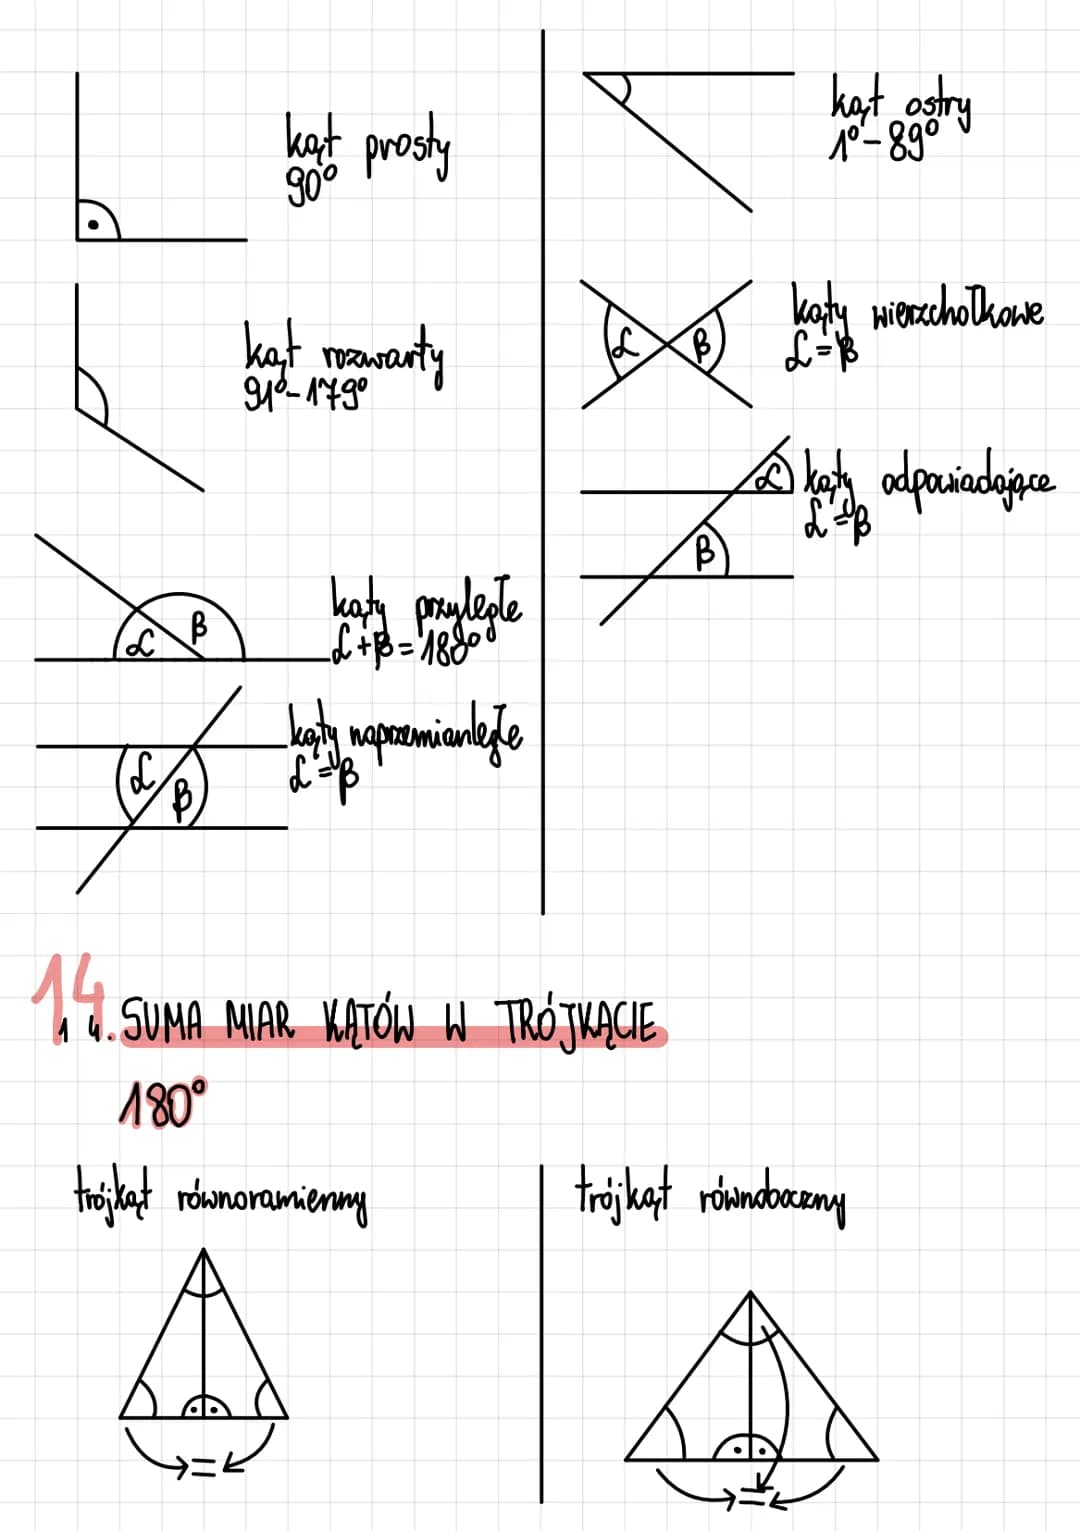 kąt prosty
90°
kąt rozwarty
91°-179°
α
β
kąty przyległe
α+β=180°
α
β
kąty naprzemianległe
α=β
kąt ostry
1°-89°
α
β
kąty wierzchołkowe
α=β
α
β
kąty odpowiadające
α=β
14.
14. SUMA MIAR KĄTÓW W TRÓJKĄCIE
180°
trójkąt równoramienny
=
trójkąt równoboczny
=